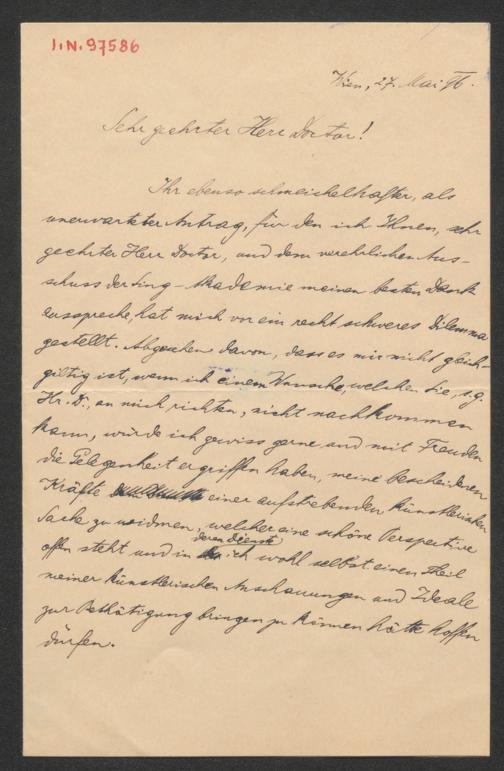 I.N. 97586
Wien, 27. Mai 96.
Sehr geehrter Herr Doctor!
Ihr ebenso schmeichelhafter, als
unerwarteter Antrag, für den ich Ihnen, sehr
geehrter Herr Doctor, und dem verehrlichen Aus-
schuss der Sing-Akademie meinen besten Dank
ausspreche, hat mich vor ein recht schweres Dilemma
gestellt. Abgesehen davon, dass es mir nicht gleich-
giltig ist, wenn ich einem Wunsche, welchen Sie, s.g.
Hr. Dr., an mich richten, nicht nachkommen
kann, würde ich gewiss gerne und mit Freuden
die Gelegenheit ergriffen haben, meine bescheidenen
Kräfte einer aufstrebenden künstlerischen
Sache zu widmen, welcher eine schöne Perspective
offen steht und in deren Dienst ich wohl selbst einen Theil
meiner künstlerischen Anschauungen und Ideale
zur Bethätigung bringen zu können hätte hoffen
dürfen.